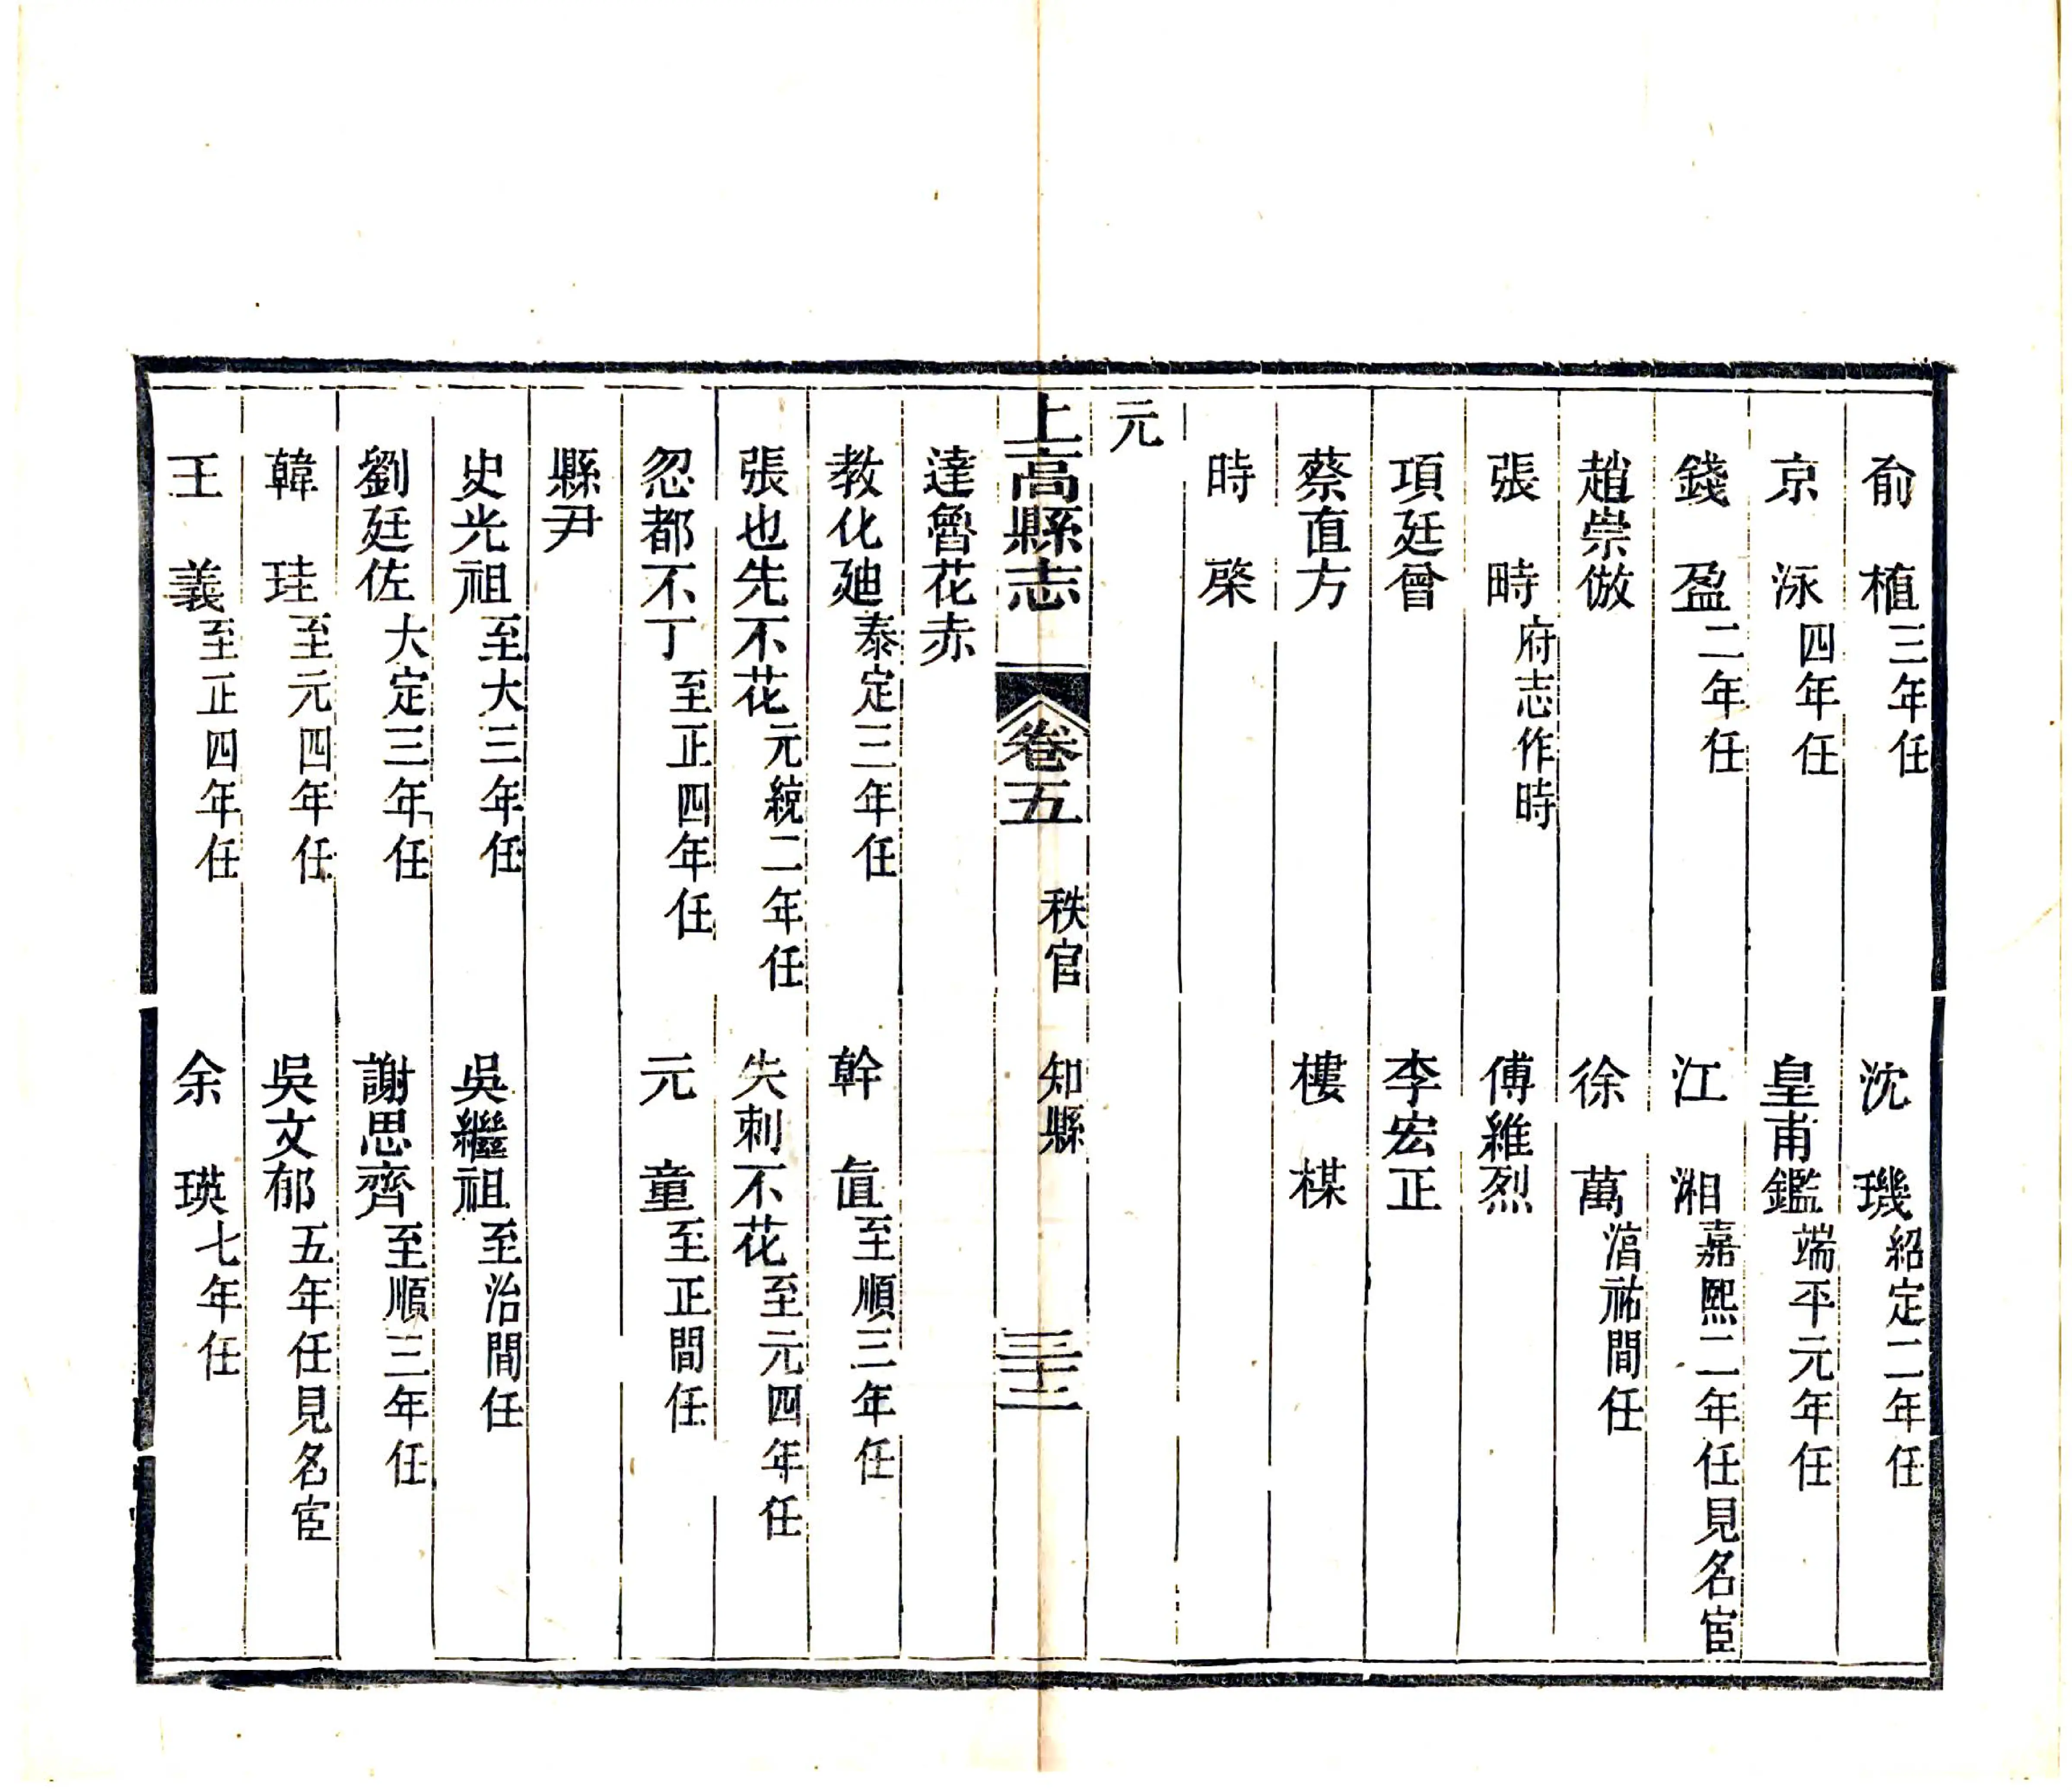 俞　植三年任　沈　璣紹定二年任
京　泳四年任　皇甫鑑端平元年任
錢　盈二年任　江　湘嘉熙二年任見名宦
趙崇倣　徐　萬湻祐間任
張　畤府志作時　傅維烈
項廷曾　李宏正
蔡直方　樓　楳
時　棨
元
上高縣志　卷五　秩官　知縣　三十三
達魯花赤
教化廸泰定三年任　幹　直至順三年任
張也先不花元統二年任　失刺不花至元四年任
忽都不丁至正四年任　元　童至正間任
縣尹
史光祖至大三年任　吳繼祖至治間任
劉廷佐大定三年任　謝思齊至順三年任
韓　珪至元四年任　吳文郁五年任見名宦
王　義至正四年任　余　瑛七年任